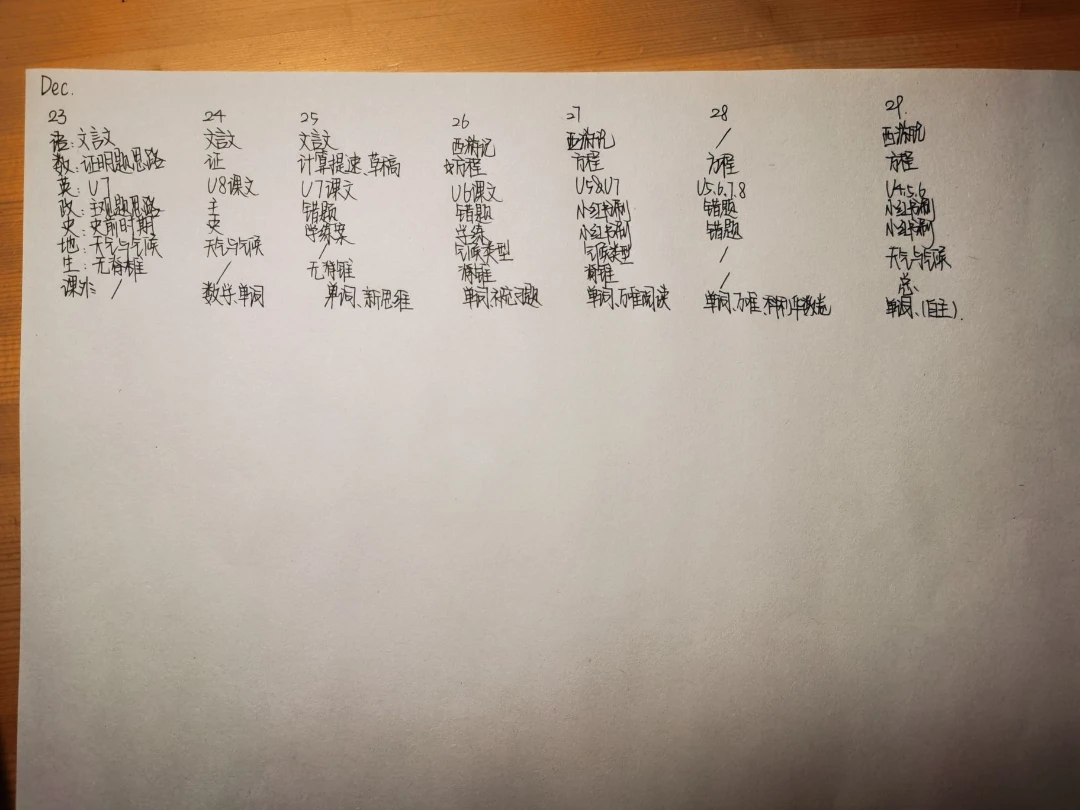 Dec.
23 24 25 26 27 28 29.
语:文言文 文言文 文言文 西游记 西游记 / 西游记
数:证明题思路 证 计算提速、草稿 方程 方程 方程 方程
英:U7 U8课文 U7课文 U6课文 U5&U7 U5.6.7.8 U4.5.6
政:主观题思路 主 错题 错题 小红书刷 错题 小红书刷
史:史前时期 史 学练案 学练 小红书刷 错题 小红书刷
地:天气与气候 天气与气候 / 气候类型 气候类型 / 天气与气候
生:无脊椎 / 无脊椎 脊椎 脊椎 / 总
课外: / 数学、单词 单词、新思维 单词、补充习题 单词、万唯阅读 单词、万唯、 单词、(自主).